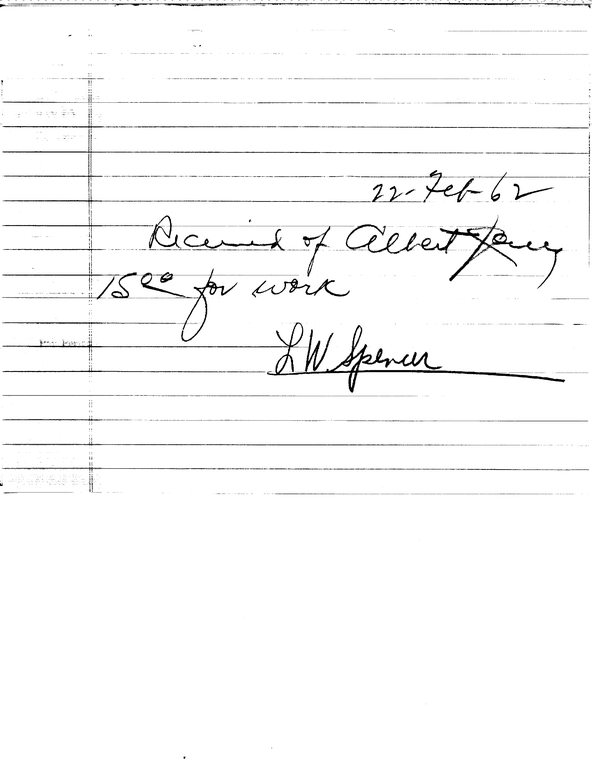 22-Feb-62
Received of Albert
15.00 for work
L W Spencer